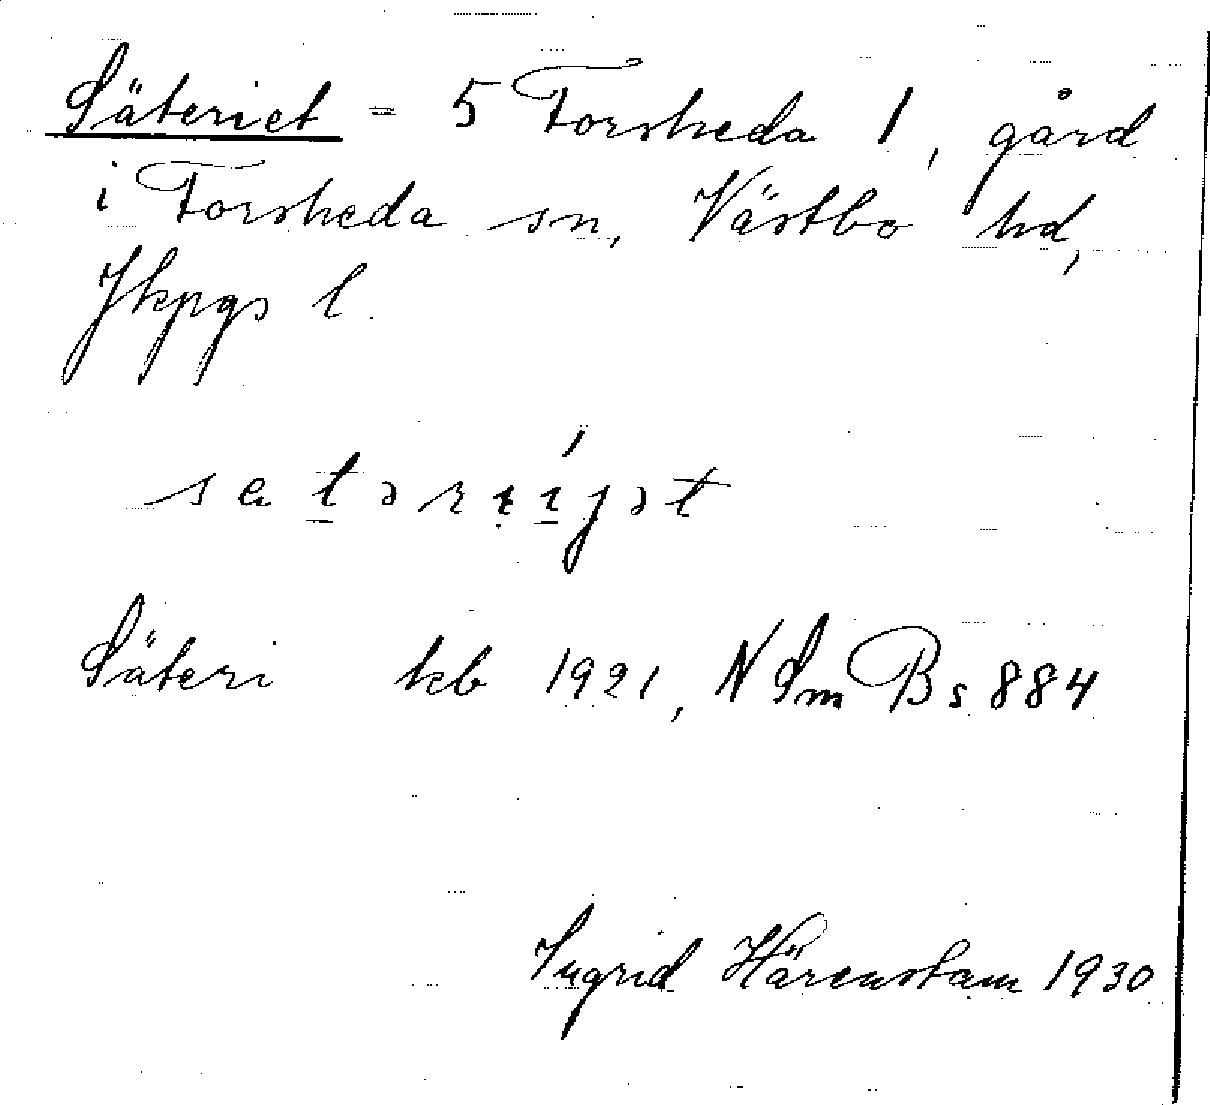 Säteriet = 5 Forsheda 1, gård
i Forsheda sn, Västbo hd,
Jkpgs l.
Säteri kb 1921, N Sm Bs 884
Ingrid Härenstam 1930